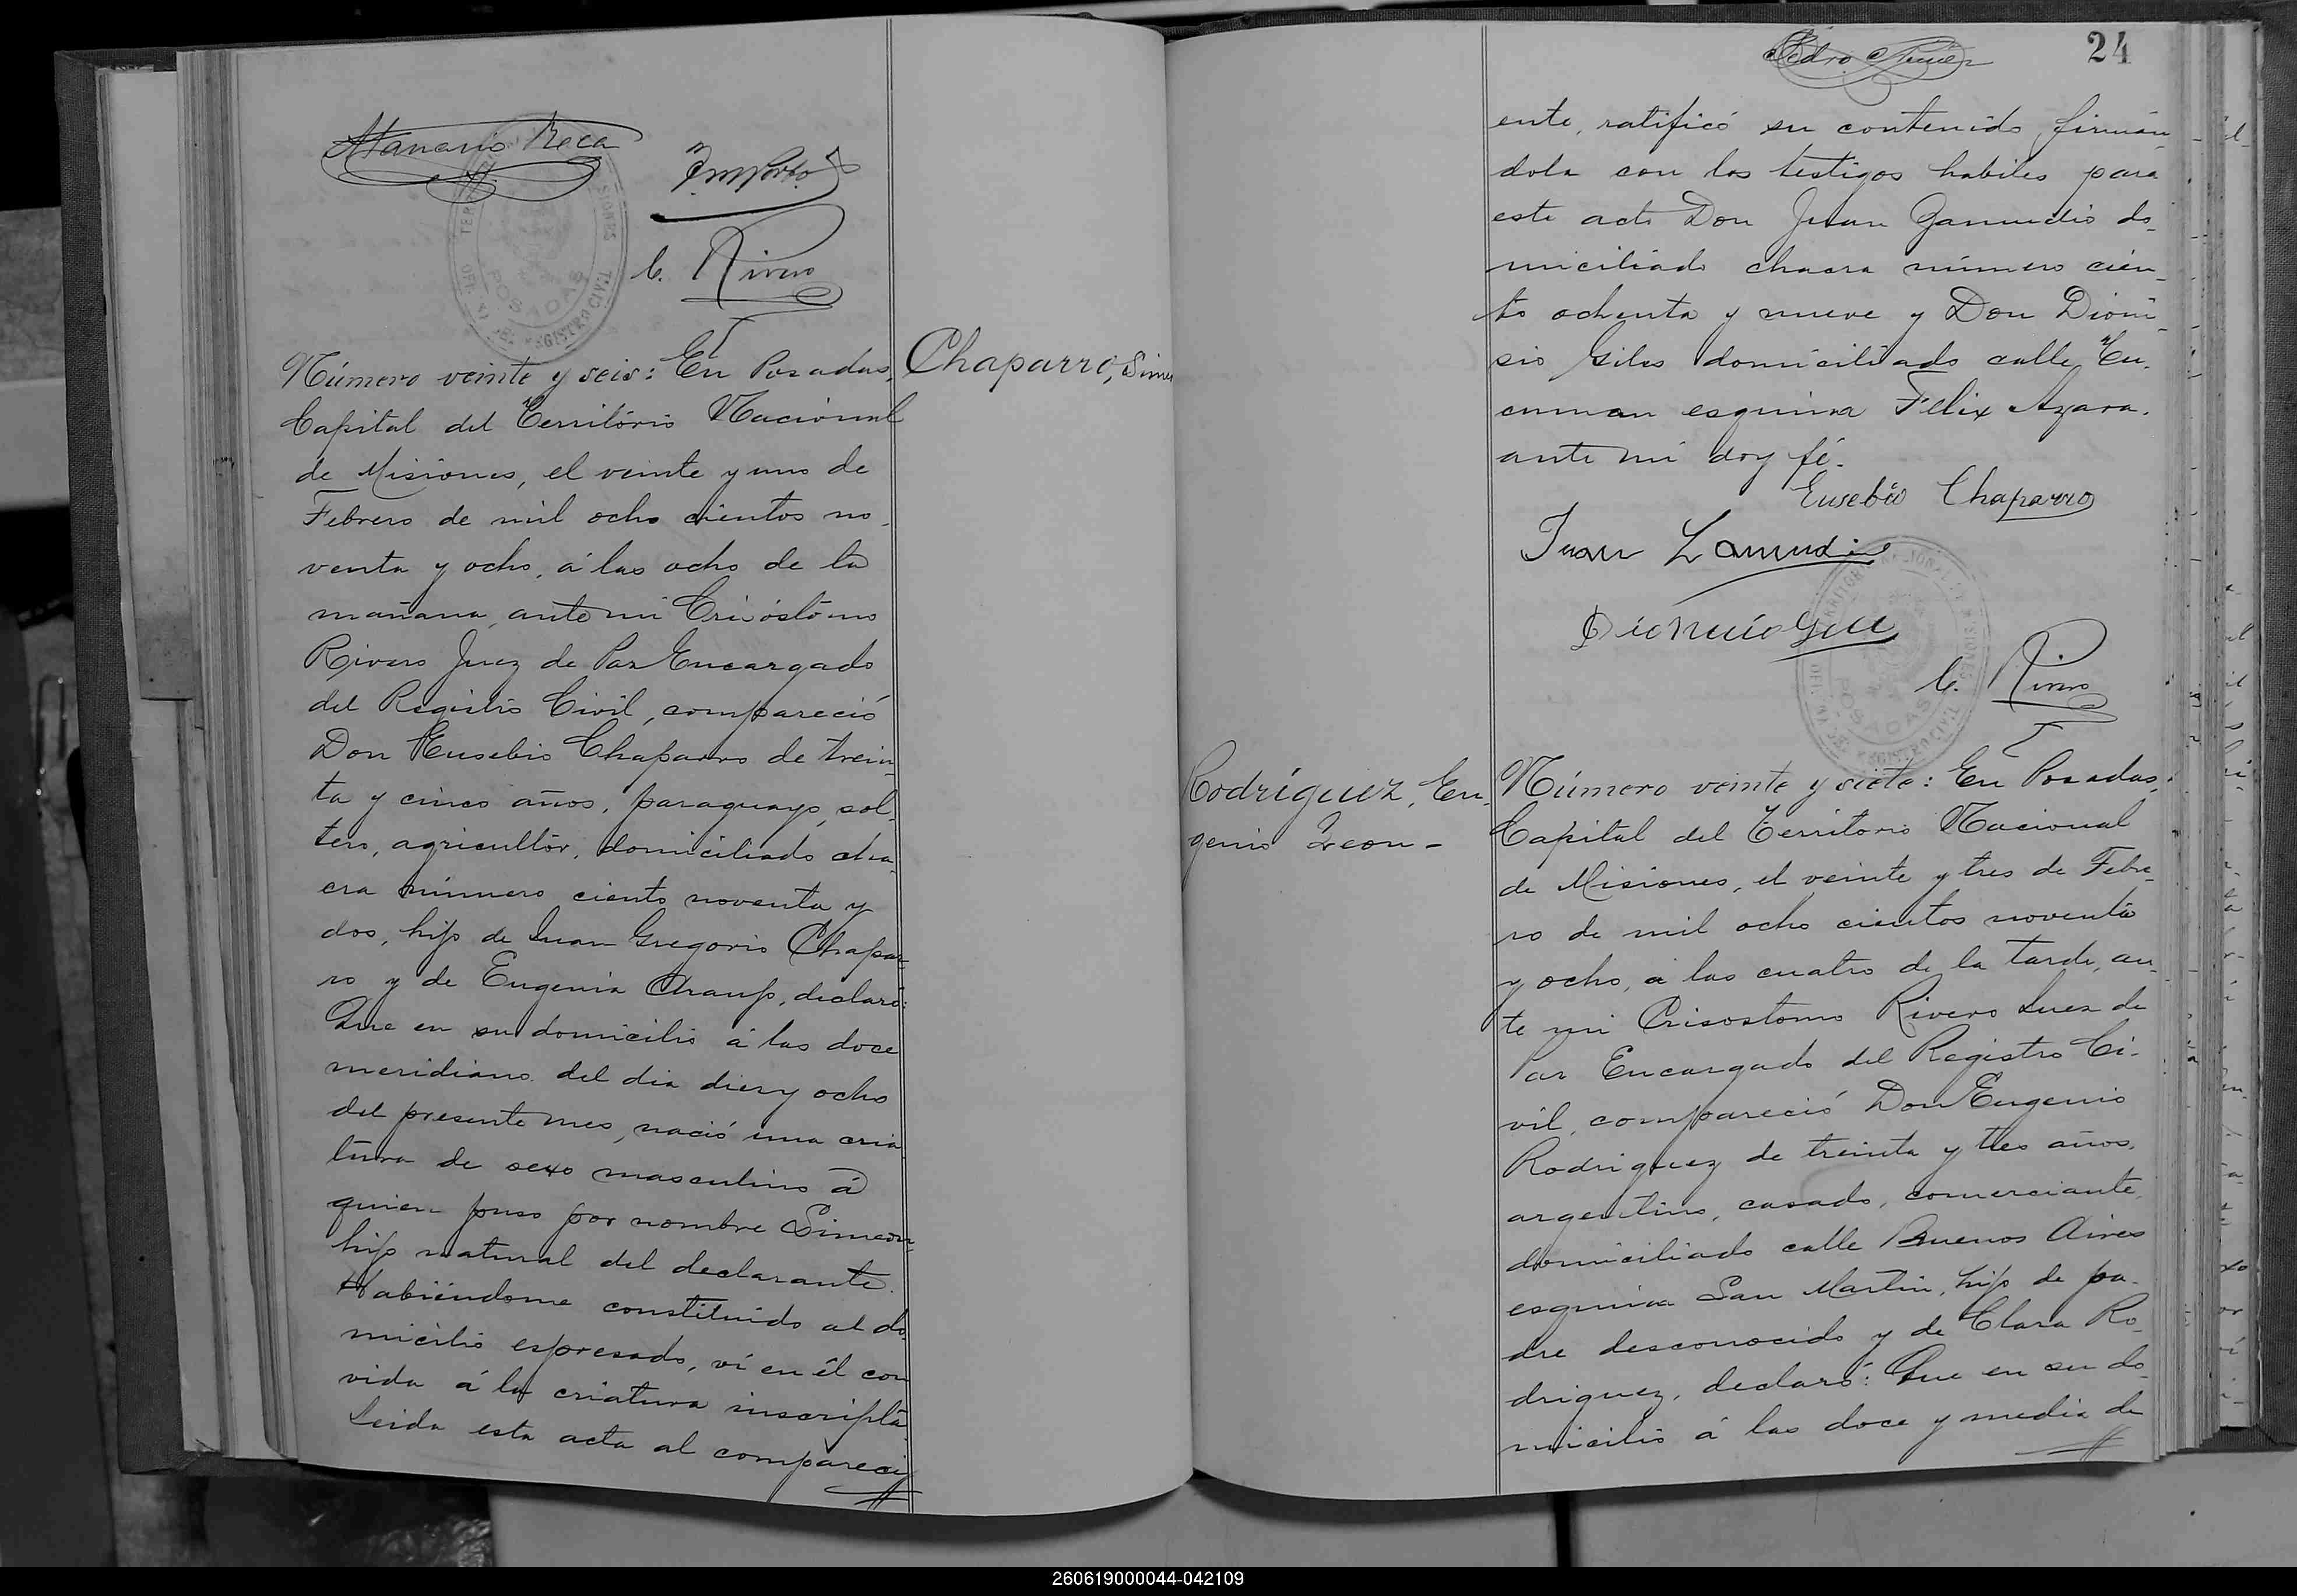 Atanacio Roca
C. Rivero
Número veinte y seis: En Posadas,
Capital del Territorio Nacional
de Misiones, el veinte y uno de
Febrero de mil ocho cientos no-
venta y ocho, á las ocho de la
mañana, ante mi Crisóstomo
Rivero Juez de Paz Encargado
del Registro Civil, compareció
Don Eusebio Chaparro de trein-
ta y cinco años, paraguayo, sol-
tero, agricultor, domiciliado cha-
cra número ciento noventa y
dos, hijo de Juan Gregorio Chapar-
ro y de Eugenia Araujo, declaró:
Que en su domicilio á las doce
meridiano del dia diez y ocho
del presente mes, nació una cria
tura de sexo masculino á
quien puso por nombre Simeon,
hijo natural del declarante.
Habiéndome constituido al do-
micilio espresado, ví en él con
vida á la criatura inscripta
Leida esta acta al compareci
Chaparro, Sime
Pedro
24
ente, ratificó su contenido firmán-
dola con los testigos habiles para
este acto Don Juan Gamudio do-
miciliado chacra número cien-
to ochenta y nueve y Don Dioni-
sio Giles domiciliado calle Tu-
cuman esquina Felix Azara.
ante mí doy fé.
Eusebio Chaparro
Juan
C. Rivero
Rodríguez, Eu-
genio Leon -
Número veinte y siete: En Posadas,
Capital del Territorio Nacional
de Misiones, el veinte y tres de Febre-
ro de mil ocho cientos noventa
y ocho, á las cuatro de la tarde, an-
te mi Crisostomo Rivero Juez de
Paz Encargado del Registro Ci-
vil, compareció Don Eugenio
Rodriguez de treinta y tres años,
argentino, casado, comerciante,
domiciliado calle Buenos Aires
esquina San Martin, hijo de pa-
dre desconocido y de Clara Ro-
driguez, declaró: Que en su do-
micilio á las doce y media de
260619000044-042109